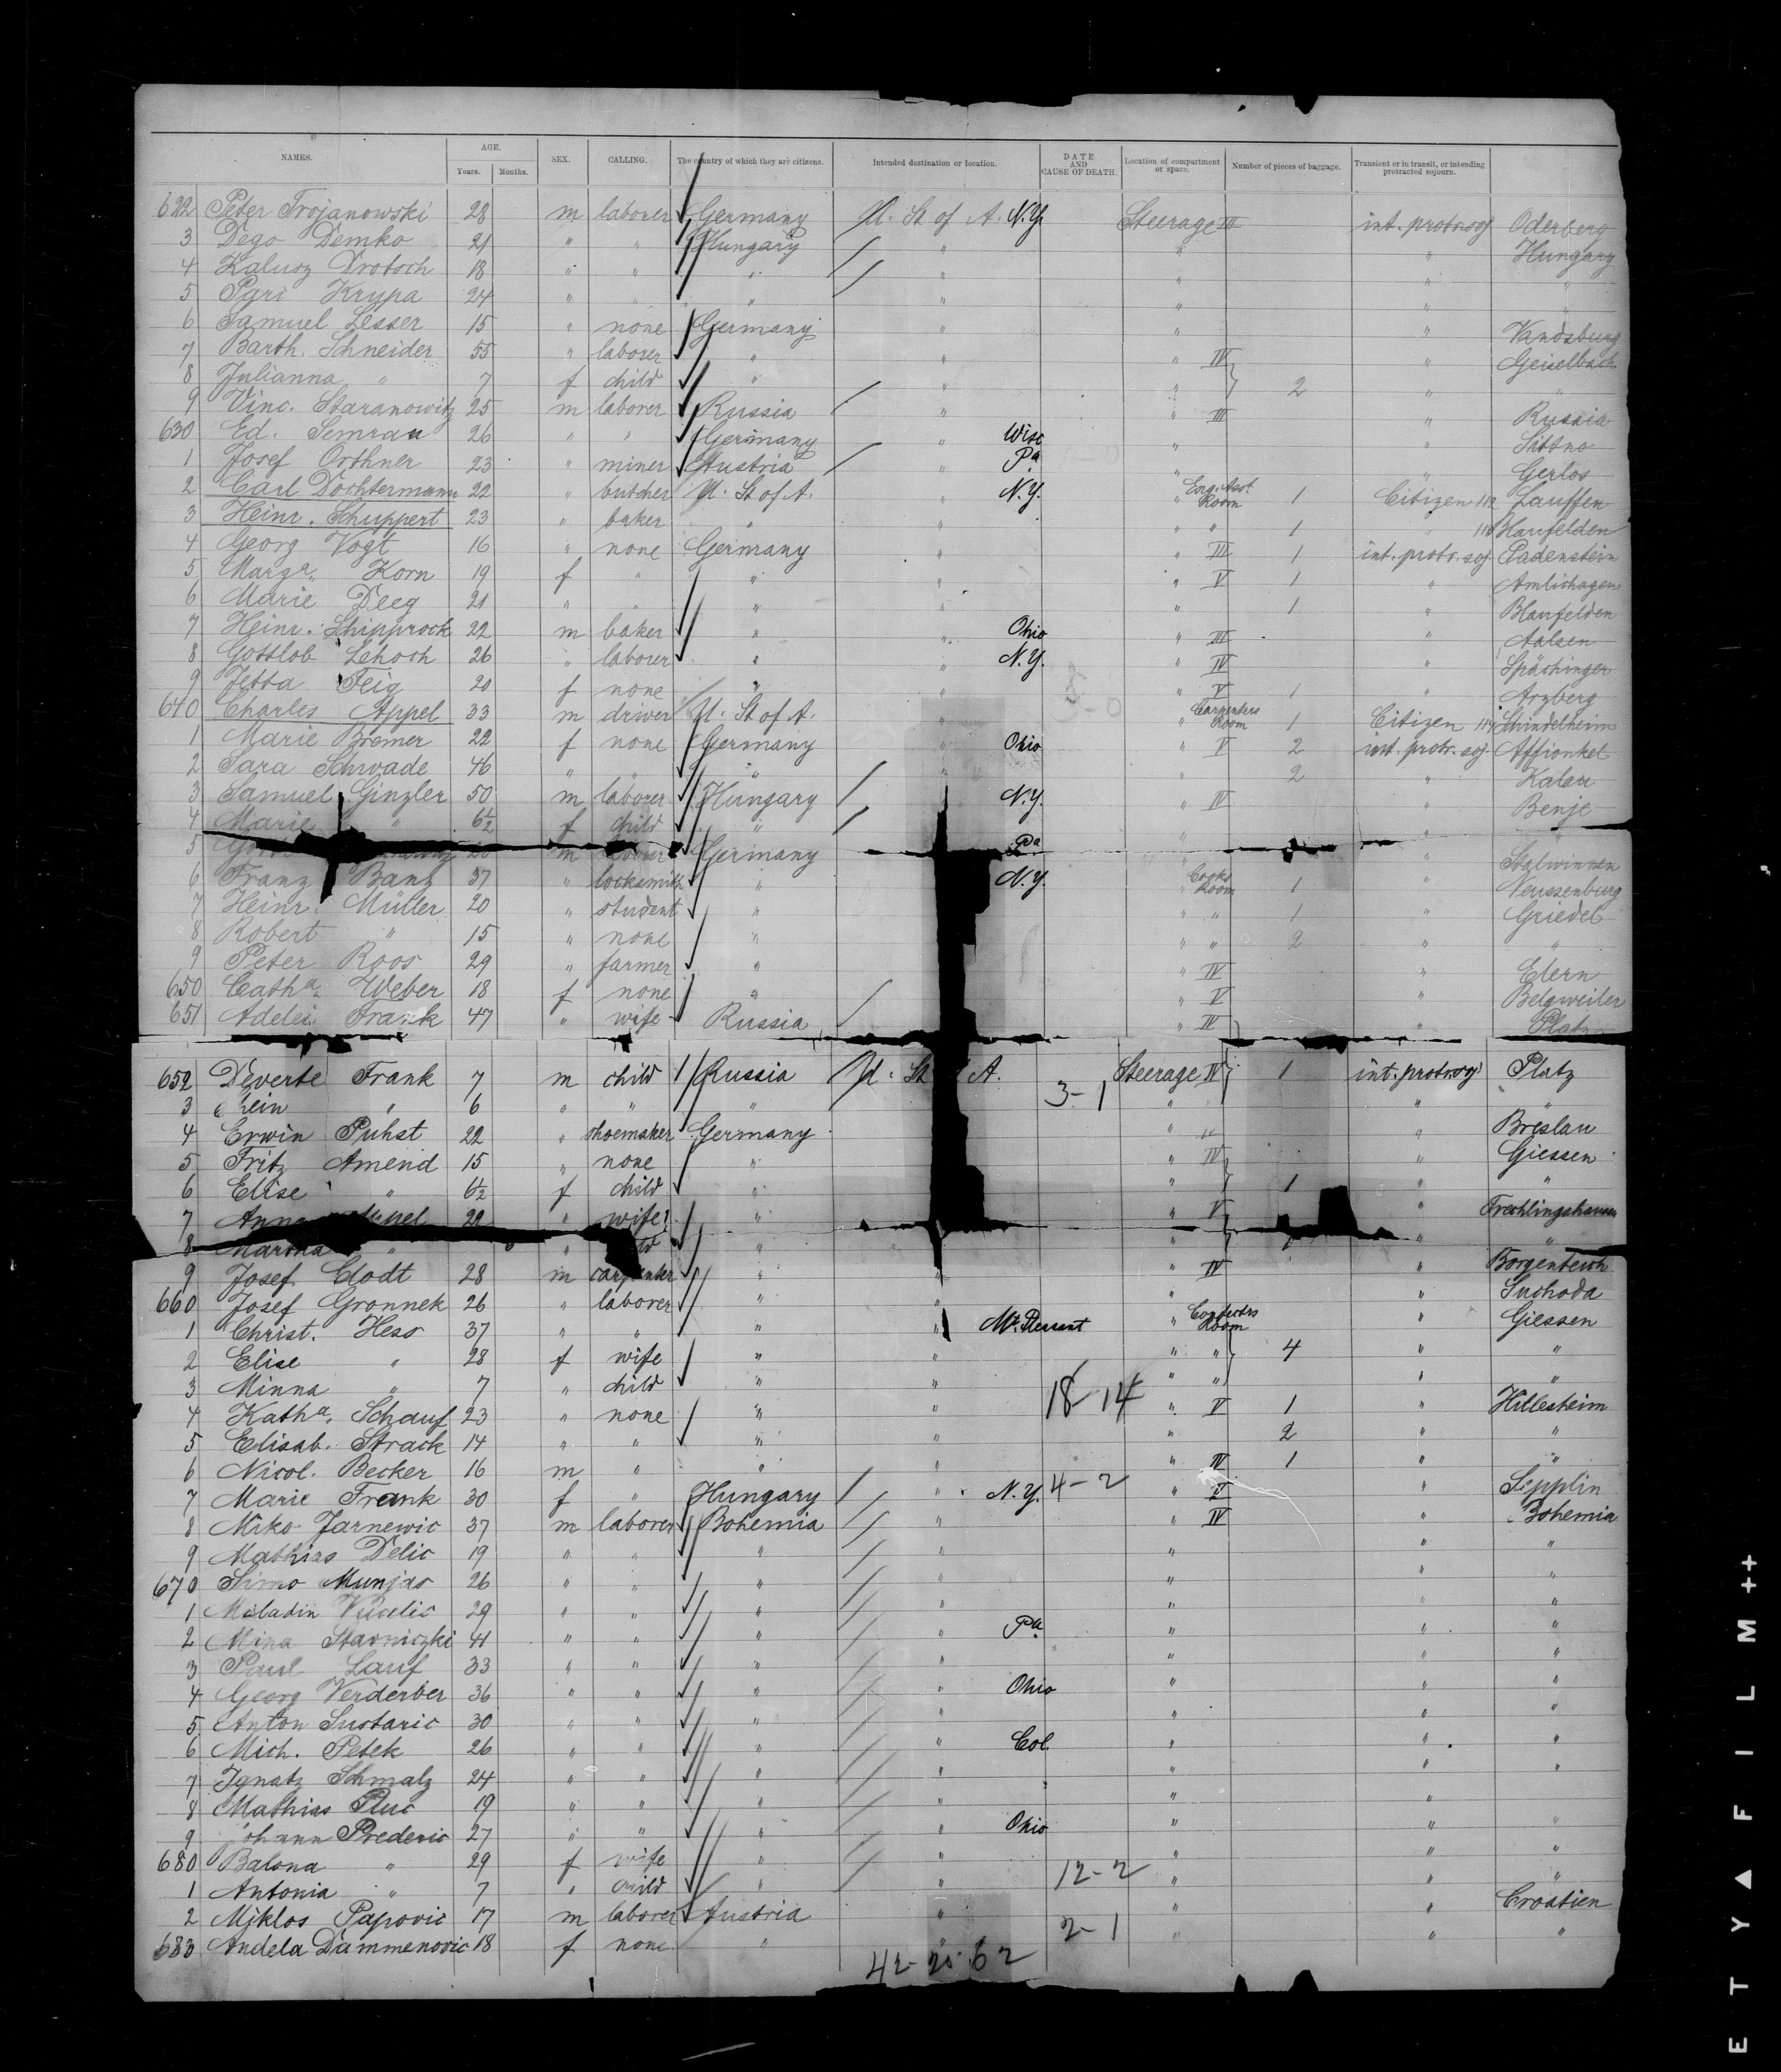 NAMES. AGE. SEX. CALLING. The country of which they are citizens. Intended destination or location. DATE AND CAUSE OF DEATH. Location of compartment or space. Number of pieces of baggage. Transient or in transit, or intending protracted sojourn.
Years. Months.
622 Peter Trojanowski 28 m laborer Germany U. St of A. N.Y. Steerage III int. protr. soj Oderberg
3 Dego Demko 21 " " Hungary " " " Hungary
4 Kalusz Drotoch 18 " " " " " " "
5 Pgri Krypa 24 " " " " " " "
6 Samuel Lesser 15 " none Germany " " " Vandsburg
7 Barth. Schneider 55 " laborer " " " IV " Geiselbach
8 Julianna " 7 f child " " " 2 " "
9 Vinc. Staranowitz 25 m laborer Russia " " III " Russia
630 Ed. Semrau 26 " " Germany " Wisc " " Sittno
1 Josef Orthner 23 " miner Austria " Pa. " " Gerlos
2 Carl Dochtermann 22 " butcher U. St of A. " N.Y. " Eng. Asst. Room 1 Citizen 112 Lauffen
3 Heinr. Schuppert 23 " baker " " " " 1 " 113 Blaufelden
4 Georg Vogt 16 " none Germany " " III 1 int. protr. soj. Padenstein
5 Marga. Korn 19 f " " " " V 1 " Amlishagen
6 Marie Deeg 21 " " " " " 1 " Blaufelden
7 Heinr. Schipprock 22 m baker " " Ohio " III " Aalsen
8 Gottlob Lehoch 26 " laborer " " N.Y. " IV " Spächinger
9 Jetta Feig 20 f none " " " V 1 " Arzberg
640 Charles Appel 33 m driver U. St of A. " " Carpenters Room 1 Citizen 114 Schindelheim
1 Marie Bremer 22 f none Germany " Ohio " V 2 int. protr. soj. Affionkel
2 Sara Schwade 46 " " " " " 2 " Kalau
3 Samuel Ginzler 50 m laborer Hungary " N.Y. " IV " Benje
4 Marie " 6½ f child " " " "
5 m laborer Germany Pa " " Stalwinnen
6 Franz Banz 37 " locksmith " N.Y. " Cooks Room 1 " Neussenburg
7 Heinr. Müller 20 " student " " " 1 " Griedel
8 Robert " 15 " none " " " 2 " "
9 Peter Roos 29 " farmer " " IV " Elern
650 Catha. Weber 18 f none " " V " Belgweiler
651 Adelei Frank 47 " wife Russia " IV " Platz
652 Deverte Frank 7 m child Russia U. St A. Steerage IV 1 int. protr. soj Platz
3 hein " 6 " " " 3-1 " " "
4 Erwin Puhst 22 " shoemaker Germany " " " Breslau
5 Fritz Amend 15 " none " " IV " Giessen
6 Elise " 6½ f child " " 1 " "
7 Anna Appel 22 " wife " " V " Frechlingshausen
8 Martha " " " " " "
9 Josef Clodt 28 m carpenter " " " IV " Borgenteich
660 Josef Gronnek 26 " laborer " " " " Suchoda
1 Christ. Hess 37 " " " " Mt. Pleasant " Conductrs Room " Giessen
2 Elise " 28 f wife " " " " 4 " "
3 Minna " 7 " child " " " " " "
4 Katha. Schauf 23 " none " " 18-14 " V 1 " Hillesheim
5 Elisab. Strack 14 " " " " " 2 " "
6 Nicol. Becker 16 m " " " " IV 1 " "
7 Marie Frank 30 f " Hungary " N.Y. 4-2 " V " Sepplin
8 Miko Jarnewic 37 m laborer Bohemia " " IV " Bohemia
9 Mathias Delic 19 " " " " " " "
670 Simo Munjas 26 " " " " " " "
1 Miladin Vucelic 29 " " " " " " "
2 Mina Stavniczki 41 " " " " Pa. " " "
3 Paul Lauf 33 " " " " " " "
4 Georg Verderber 36 " " " " Ohio " " "
5 Anton Sustaric 30 " " " " " " "
6 Mich. Petek 26 " " " " Col. " " "
7 Ignatz Schmalz 24 " " " " " " "
8 Mathias Pluc 19 " " " " " " "
9 Johann Prederic 27 " " " " Ohio " " "
680 Balona " 29 f wife " " " " "
1 Antonia " 7 " child " " 12-2 " " "
2 Miklos Papovic 17 m laborer Austria " " " Croatien
683 Andela Dammenovic 18 f none " " 2-1 " " "
42-20-62
E T Y ▲ F I L M ++